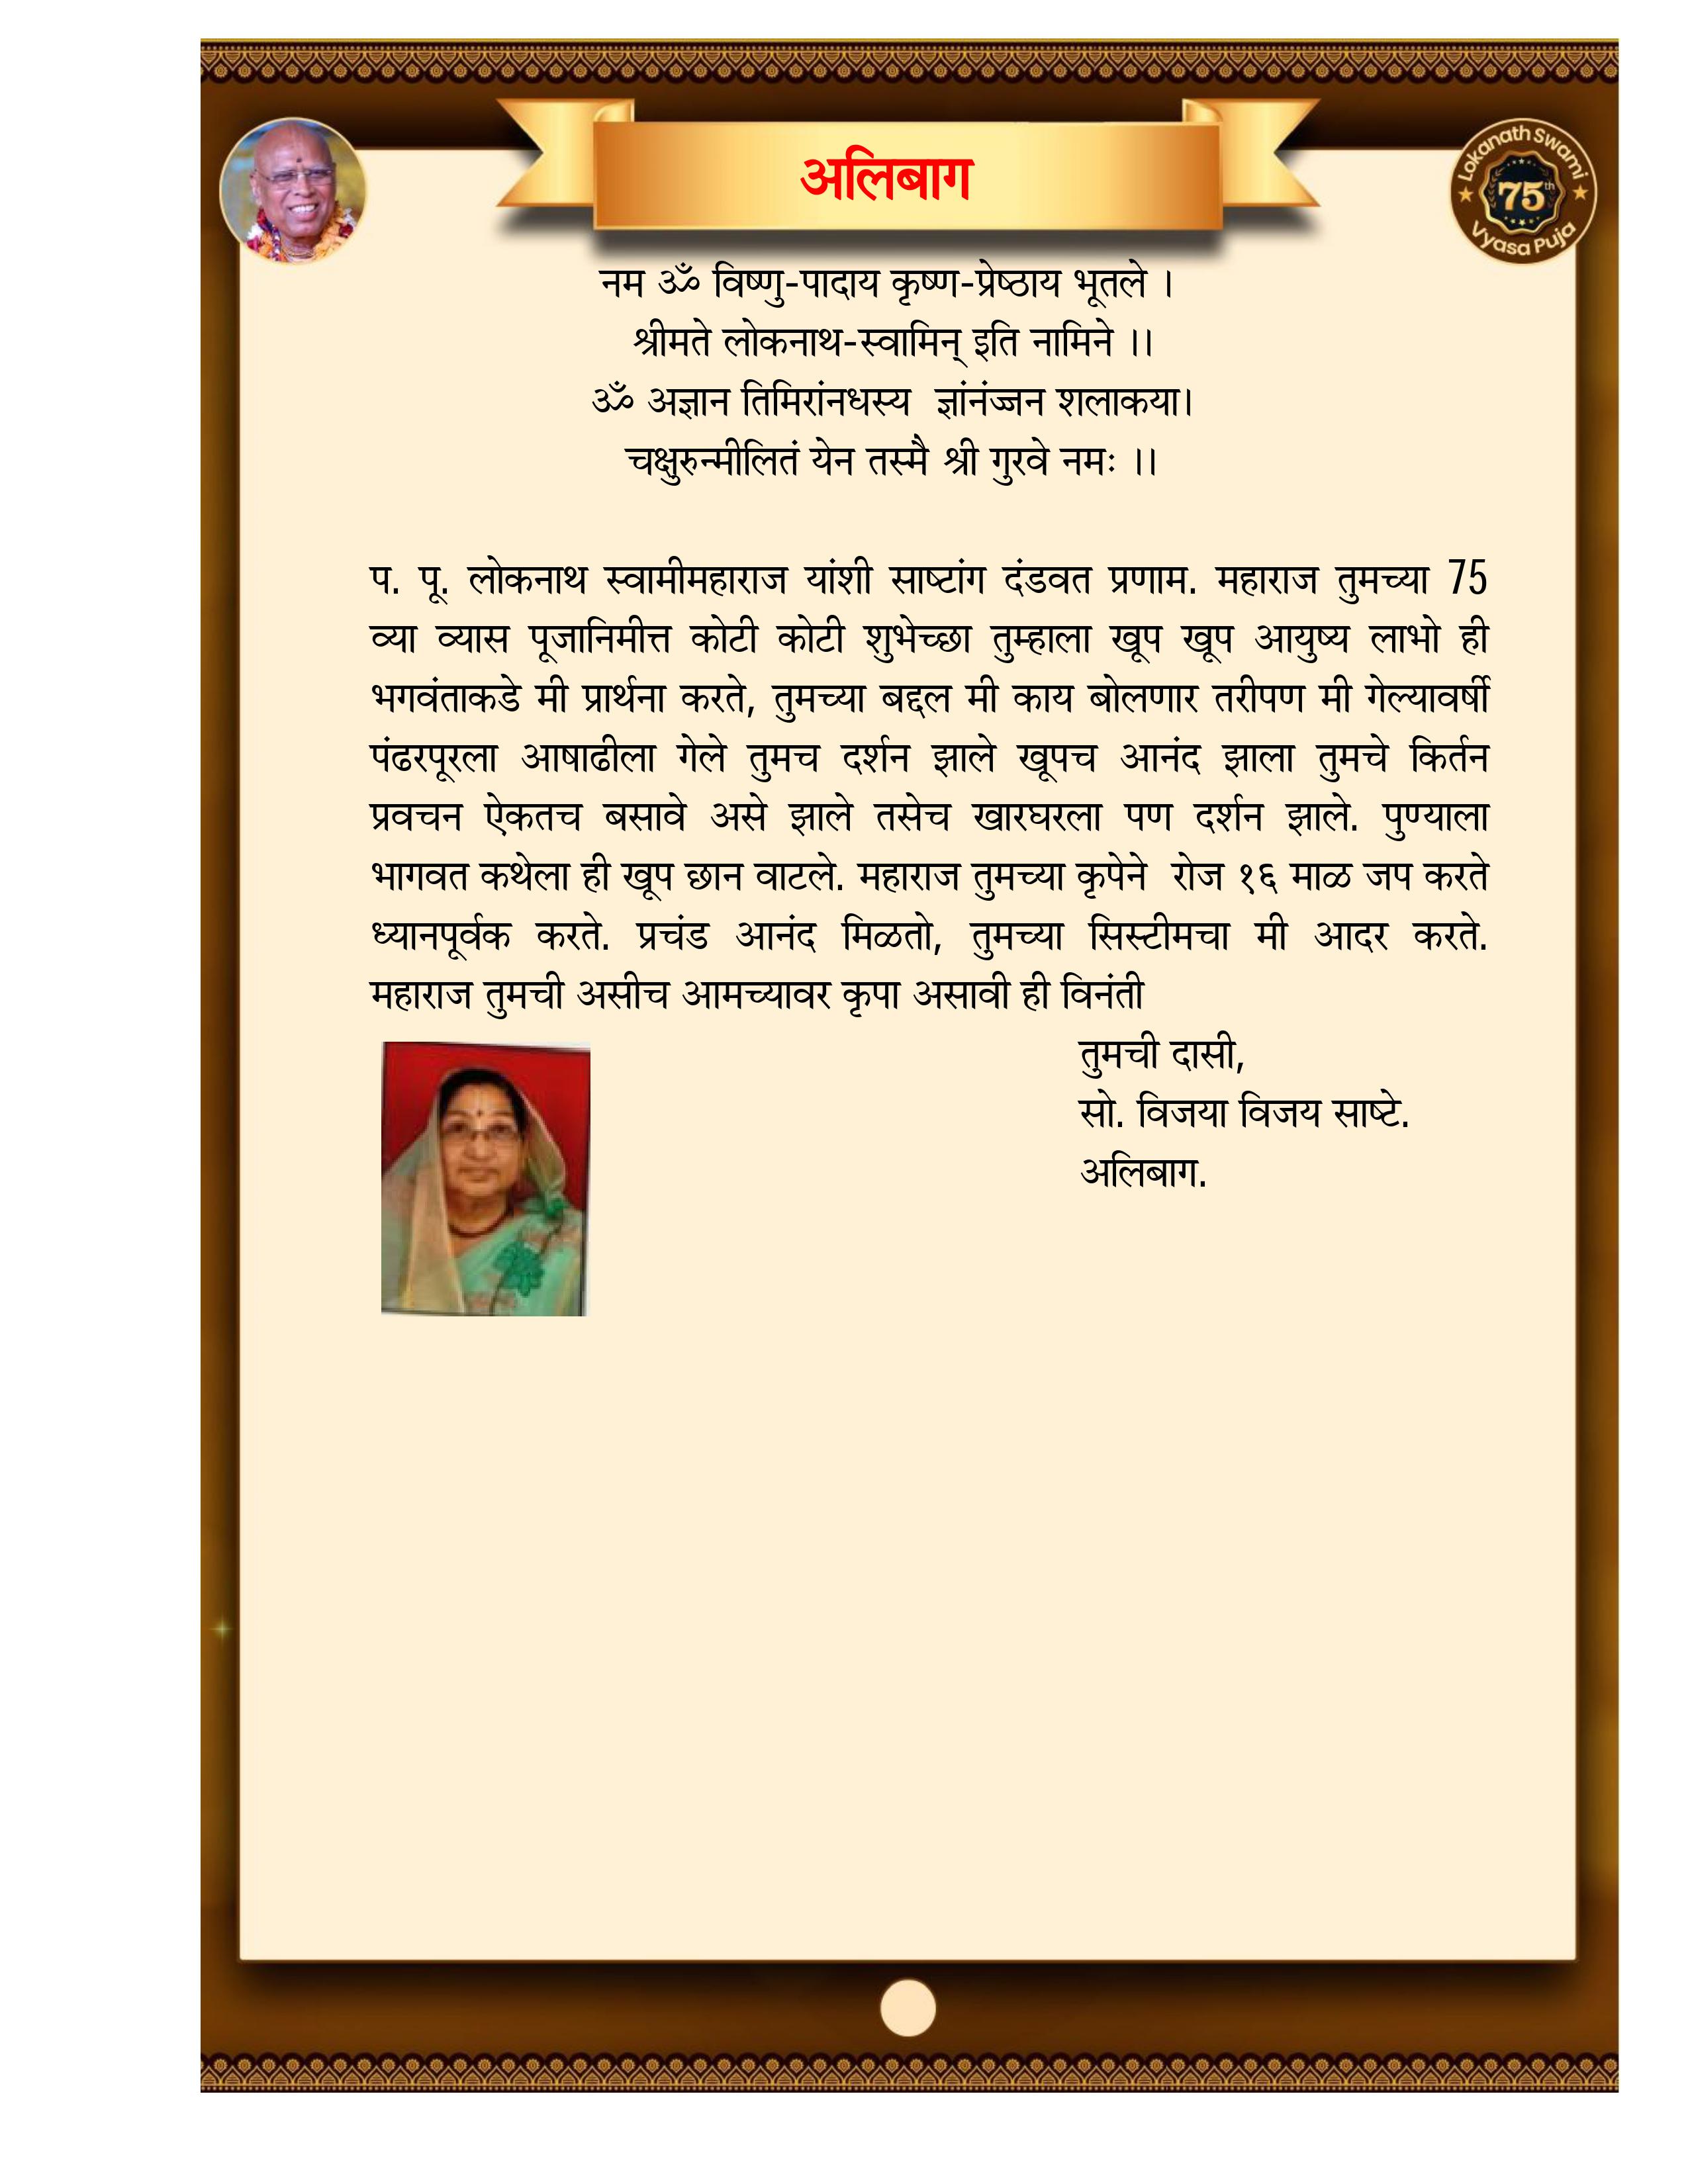 अलिबाग
Lokanath Swami
75th
Vyasa Puja
नम ॐ विष्णु-पादाय कृष्ण-प्रेष्ठाय भूतले ।
श्रीमते लोकनाथ-स्वामिन् इति नामिने ।।
ॐ अज्ञान तिमिरांनधस्य ज्ञांनंज्जन शलाकया।
चक्षुरुन्मीलितं येन तस्मै श्री गुरवे नमः ।।
प. पू. लोकनाथ स्वामीमहाराज यांशी साष्टांग दंडवत प्रणाम. महाराज तुमच्या 75
व्या व्यास पूजानिमीत्त कोटी कोटी शुभेच्छा तुम्हाला खूप खूप आयुष्य लाभो ही
भगवंताकडे मी प्रार्थना करते, तुमच्या बद्दल मी काय बोलणार तरीपण मी गेल्यावर्षी
पंढरपूरला आषाढीला गेले तुमच दर्शन झाले खूपच आनंद झाला तुमचे किर्तन
प्रवचन ऐकतच बसावे असे झाले तसेच खारघरला पण दर्शन झाले. पुण्याला
भागवत कथेला ही खूप छान वाटले. महाराज तुमच्या कृपेने रोज १६ माळ जप करते
ध्यानपूर्वक करते. प्रचंड आनंद मिळतो, तुमच्या सिस्टीमचा मी आदर करते.
महाराज तुमची असीच आमच्यावर कृपा असावी ही विनंती
तुमची दासी,
सो. विजया विजय साष्टे.
अलिबाग.